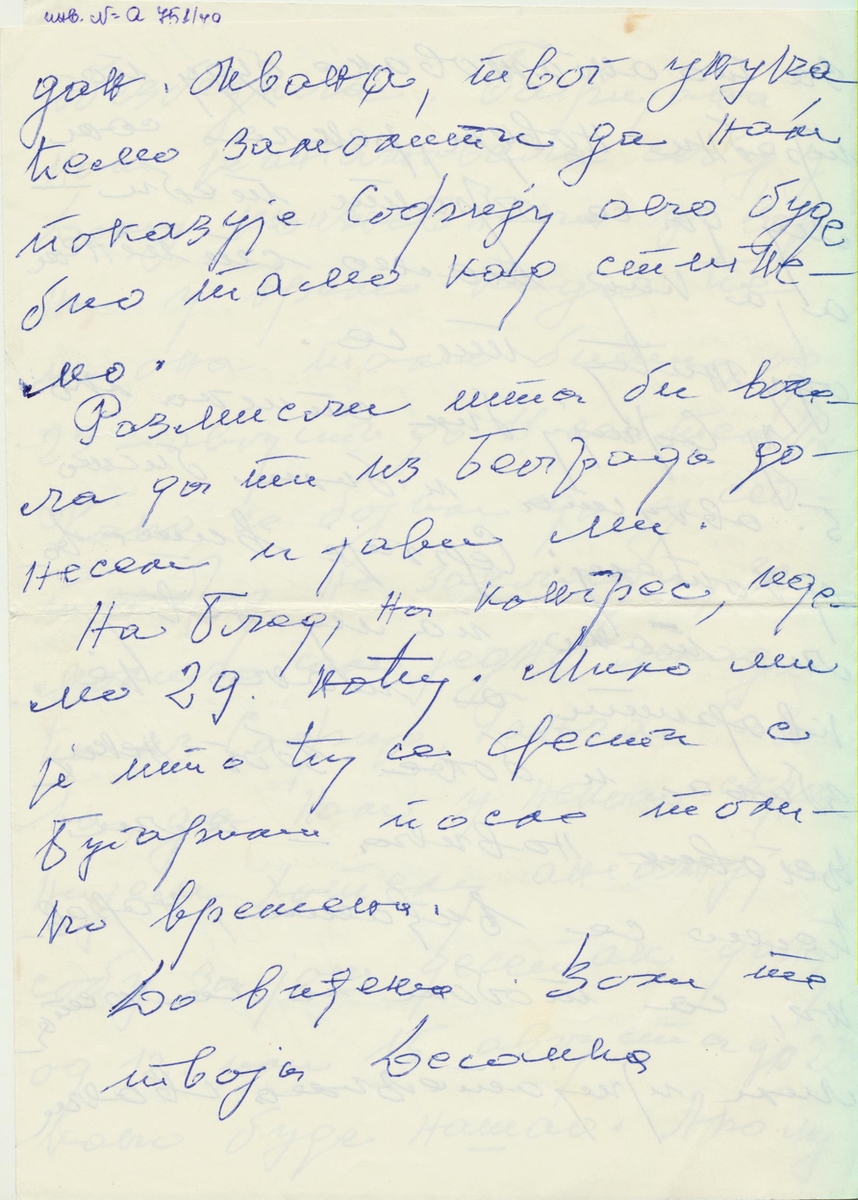 инв. № А 751/40
дан. Ивана, твог унука
ћемо замолити да нам
показује Софију ако буде
био тамо кад стигне-
мо.
Размисли шта би воле-
ла да ти из Београда до-
несем и јави ми.
На Блед, на конгрес, иде-
мо 29. ноћу. Мило ми
је што ћу се срести с
Бугарима после толи-
ко времена.
До виђења. Воли те
твоја Десанка